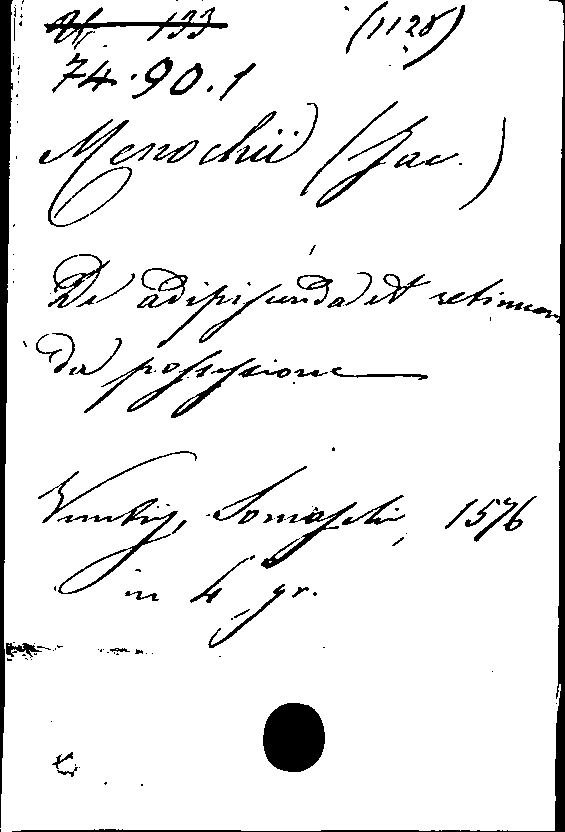 133 (1128)
74.90.1
Menochii (Jac.)
De adipiscenda et retinen
da possessione
Venetijs, Somaschi, 1576
in 4 gr.